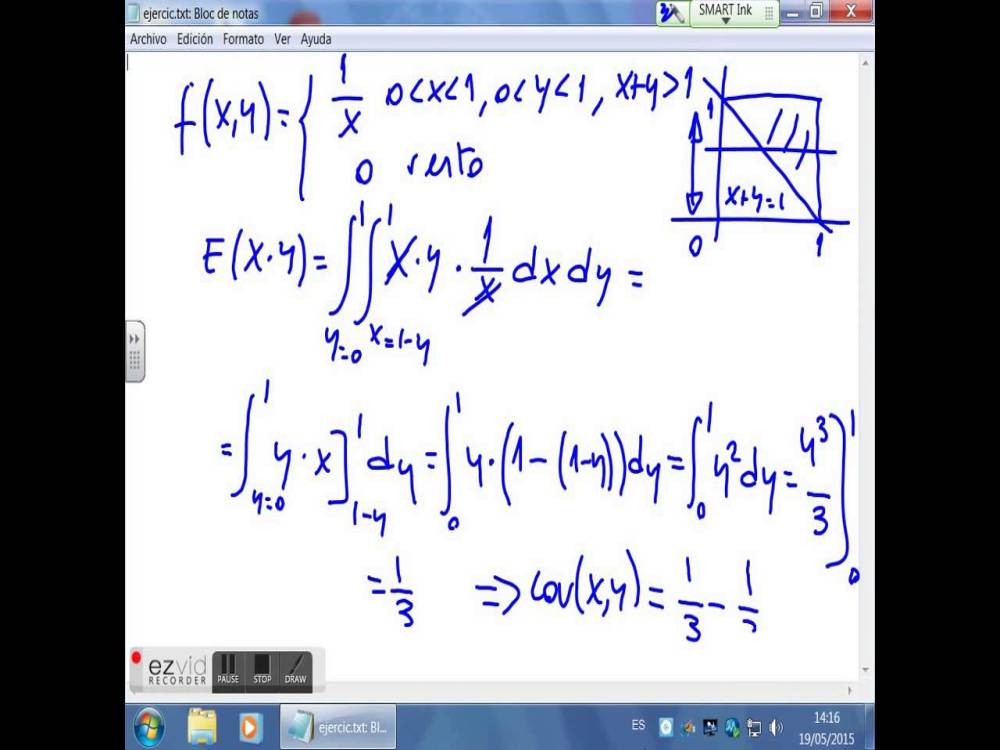 ejercic.txt: Bloc de notas
SMART Ink
Archivo Edición Formato Ver Ayuda
f(x,y) = { 1/x 0<x<1, 0<y<1, x+y>1
0 resto
1
x+y=1
0 1
E(x·y) = ∫_{y=0}^{1} ∫_{x=1-y}^{1} x·y · 1/x dx dy =
= ∫_{y=0}^{1} y·x]_{1-y}^{1} dy = ∫_{0}^{1} y·(1-(1-y))dy = ∫_{0}^{1} y² dy = y³/3]_{0}^{1}
= 1/3 => Cov(x,y) = 1/3 - 1/
ezvid
RECORDER
PAUSE STOP DRAW
ejercic.txt: Bl...
ES
14:16
19/05/2015